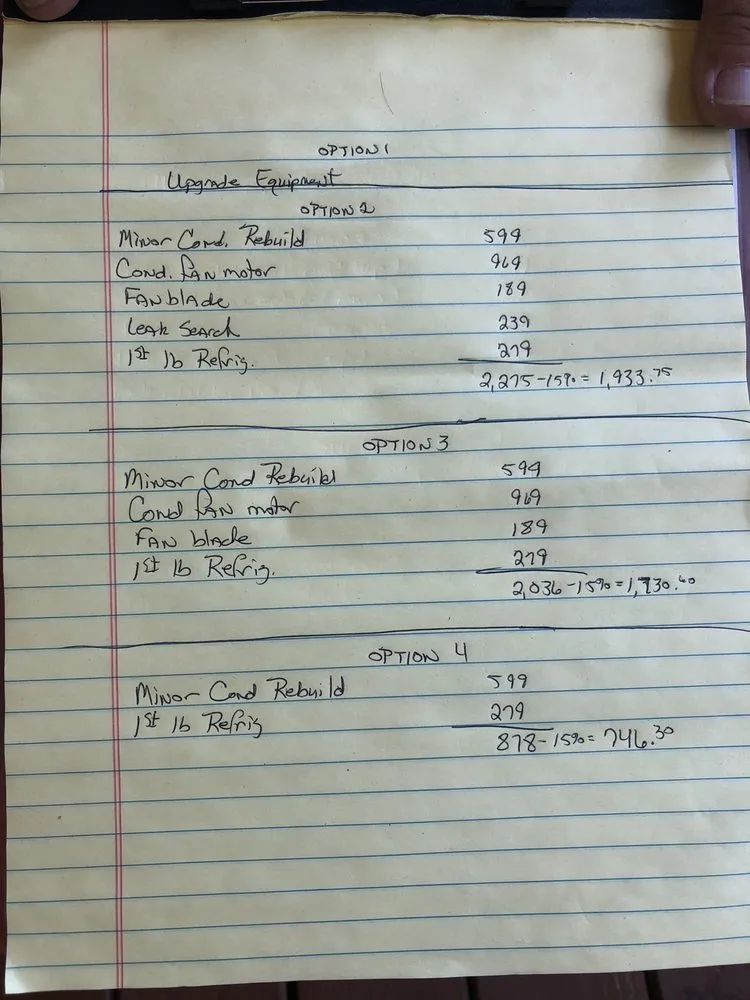 OPTION 1
Upgrade Equipment
OPTION 2
Minor Cond. Rebuild 599
Cond. FAN motor 969
FAN blade 189
Leak Search 239
1st lb Refrig. 279
2,275 - 15% = 1,933.75
OPTION 3
Minor Cond Rebuild 599
Cond FAN motor 969
FAN blade 189
1st lb Refrig. 279
2,036 - 15% = 1,730.60
OPTION 4
Minor Cond Rebuild 599
1st lb Refrig 279
878 - 15% = 746.30